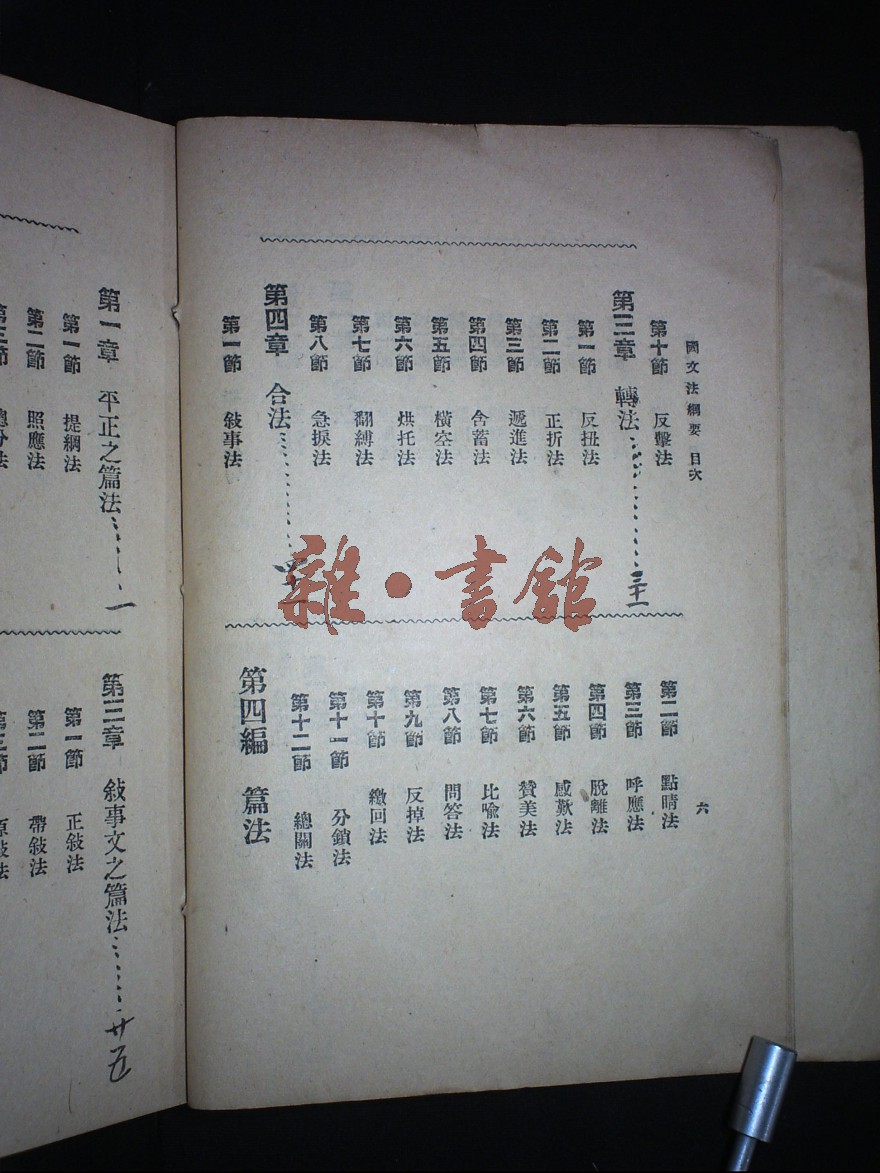 國文法綱要 目次
六
第十節 反擊法
第三章 轉法…………三十一
第一節 反扭法
第二節 正折法
第三節 遞進法
第四節 含蓄法
第五節 橫空法
第六節 烘托法
第七節 翻縛法
第八節 急捩法
第四章 合法…………
第一節 敍事法
第二節 點睛法
第三節 呼應法
第四節 脫離法
第五節 感歎法
第六節 贊美法
第七節 比喩法
第八節 問答法
第九節 反掉法
第十節 繳回法
第十一節 分鎖法
第十二節 總關法
第四編 篇法
第一章 平正之篇法………一
第一節 提綱法
第二節 照應法
第三節 總分法
第三章 敍事文之篇法………廿五
第一節 正敍法
第二節 帶敍法
第三節 原敍法
雜·書館